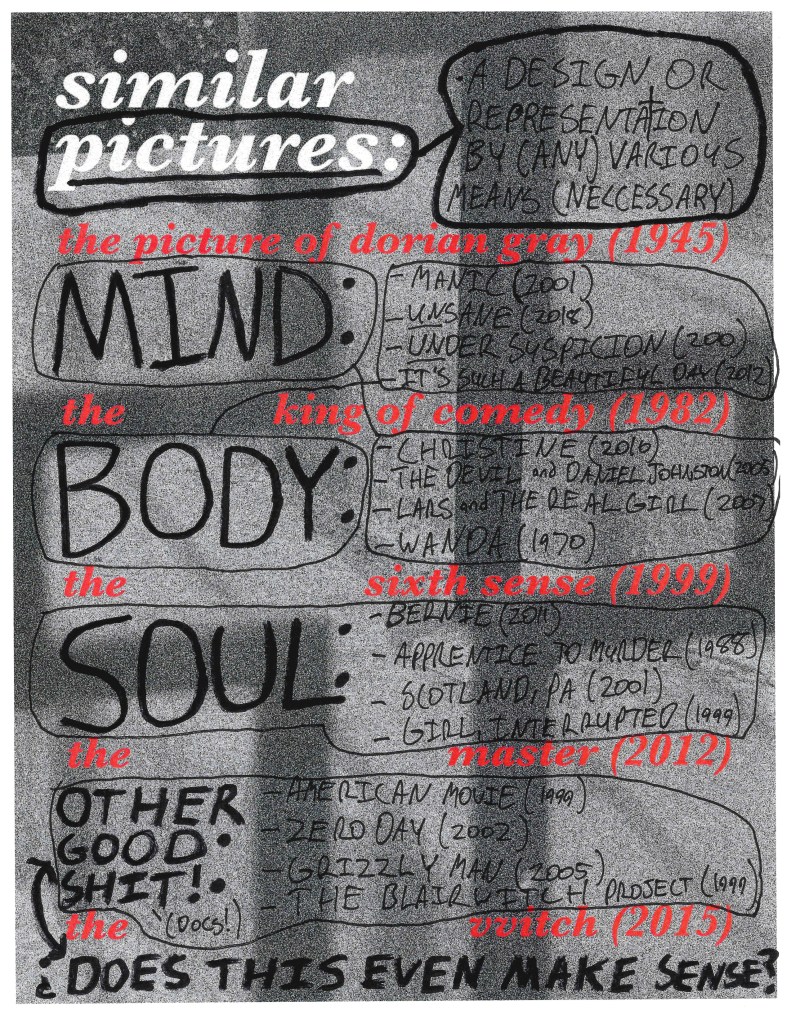 similar
pictures:
· A DESIGN OR
REPRESENTATION
BY (ANY) VARIOUS
MEANS (NECCESSARY)
the picture of dorian gray (1945)
MIND:
- MANIC (2001)
- UNSANE (2018)
- UNDER SUSPICION (2000)
- IT'S SUCH A BEAUTIFUL DAY (2012)
the king of comedy (1982)
BODY:
- CHRISTINE (2016)
- THE DEVIL and DANIEL JOHNSTON (2005)
- LARS and THE REAL GIRL (2007)
- WANDA (1970)
the sixth sense (1999)
SOUL:
- BERNIE (2011)
- APPRENTICE TO MURDER (1988)
- SCOTLAND, PA (2001)
- GIRL, INTERRUPTED (1999)
the master (2012)
OTHER
GOOD
SHIT!:
(DOCS!)
- AMERICAN MOVIE (1999)
- ZERO DAY (2002)
- GRIZZLY MAN (2005)
- THE BLAIR WITCH PROJECT (1999
the vvitch (2015)
¿DOES THIS EVEN MAKE SENSE?